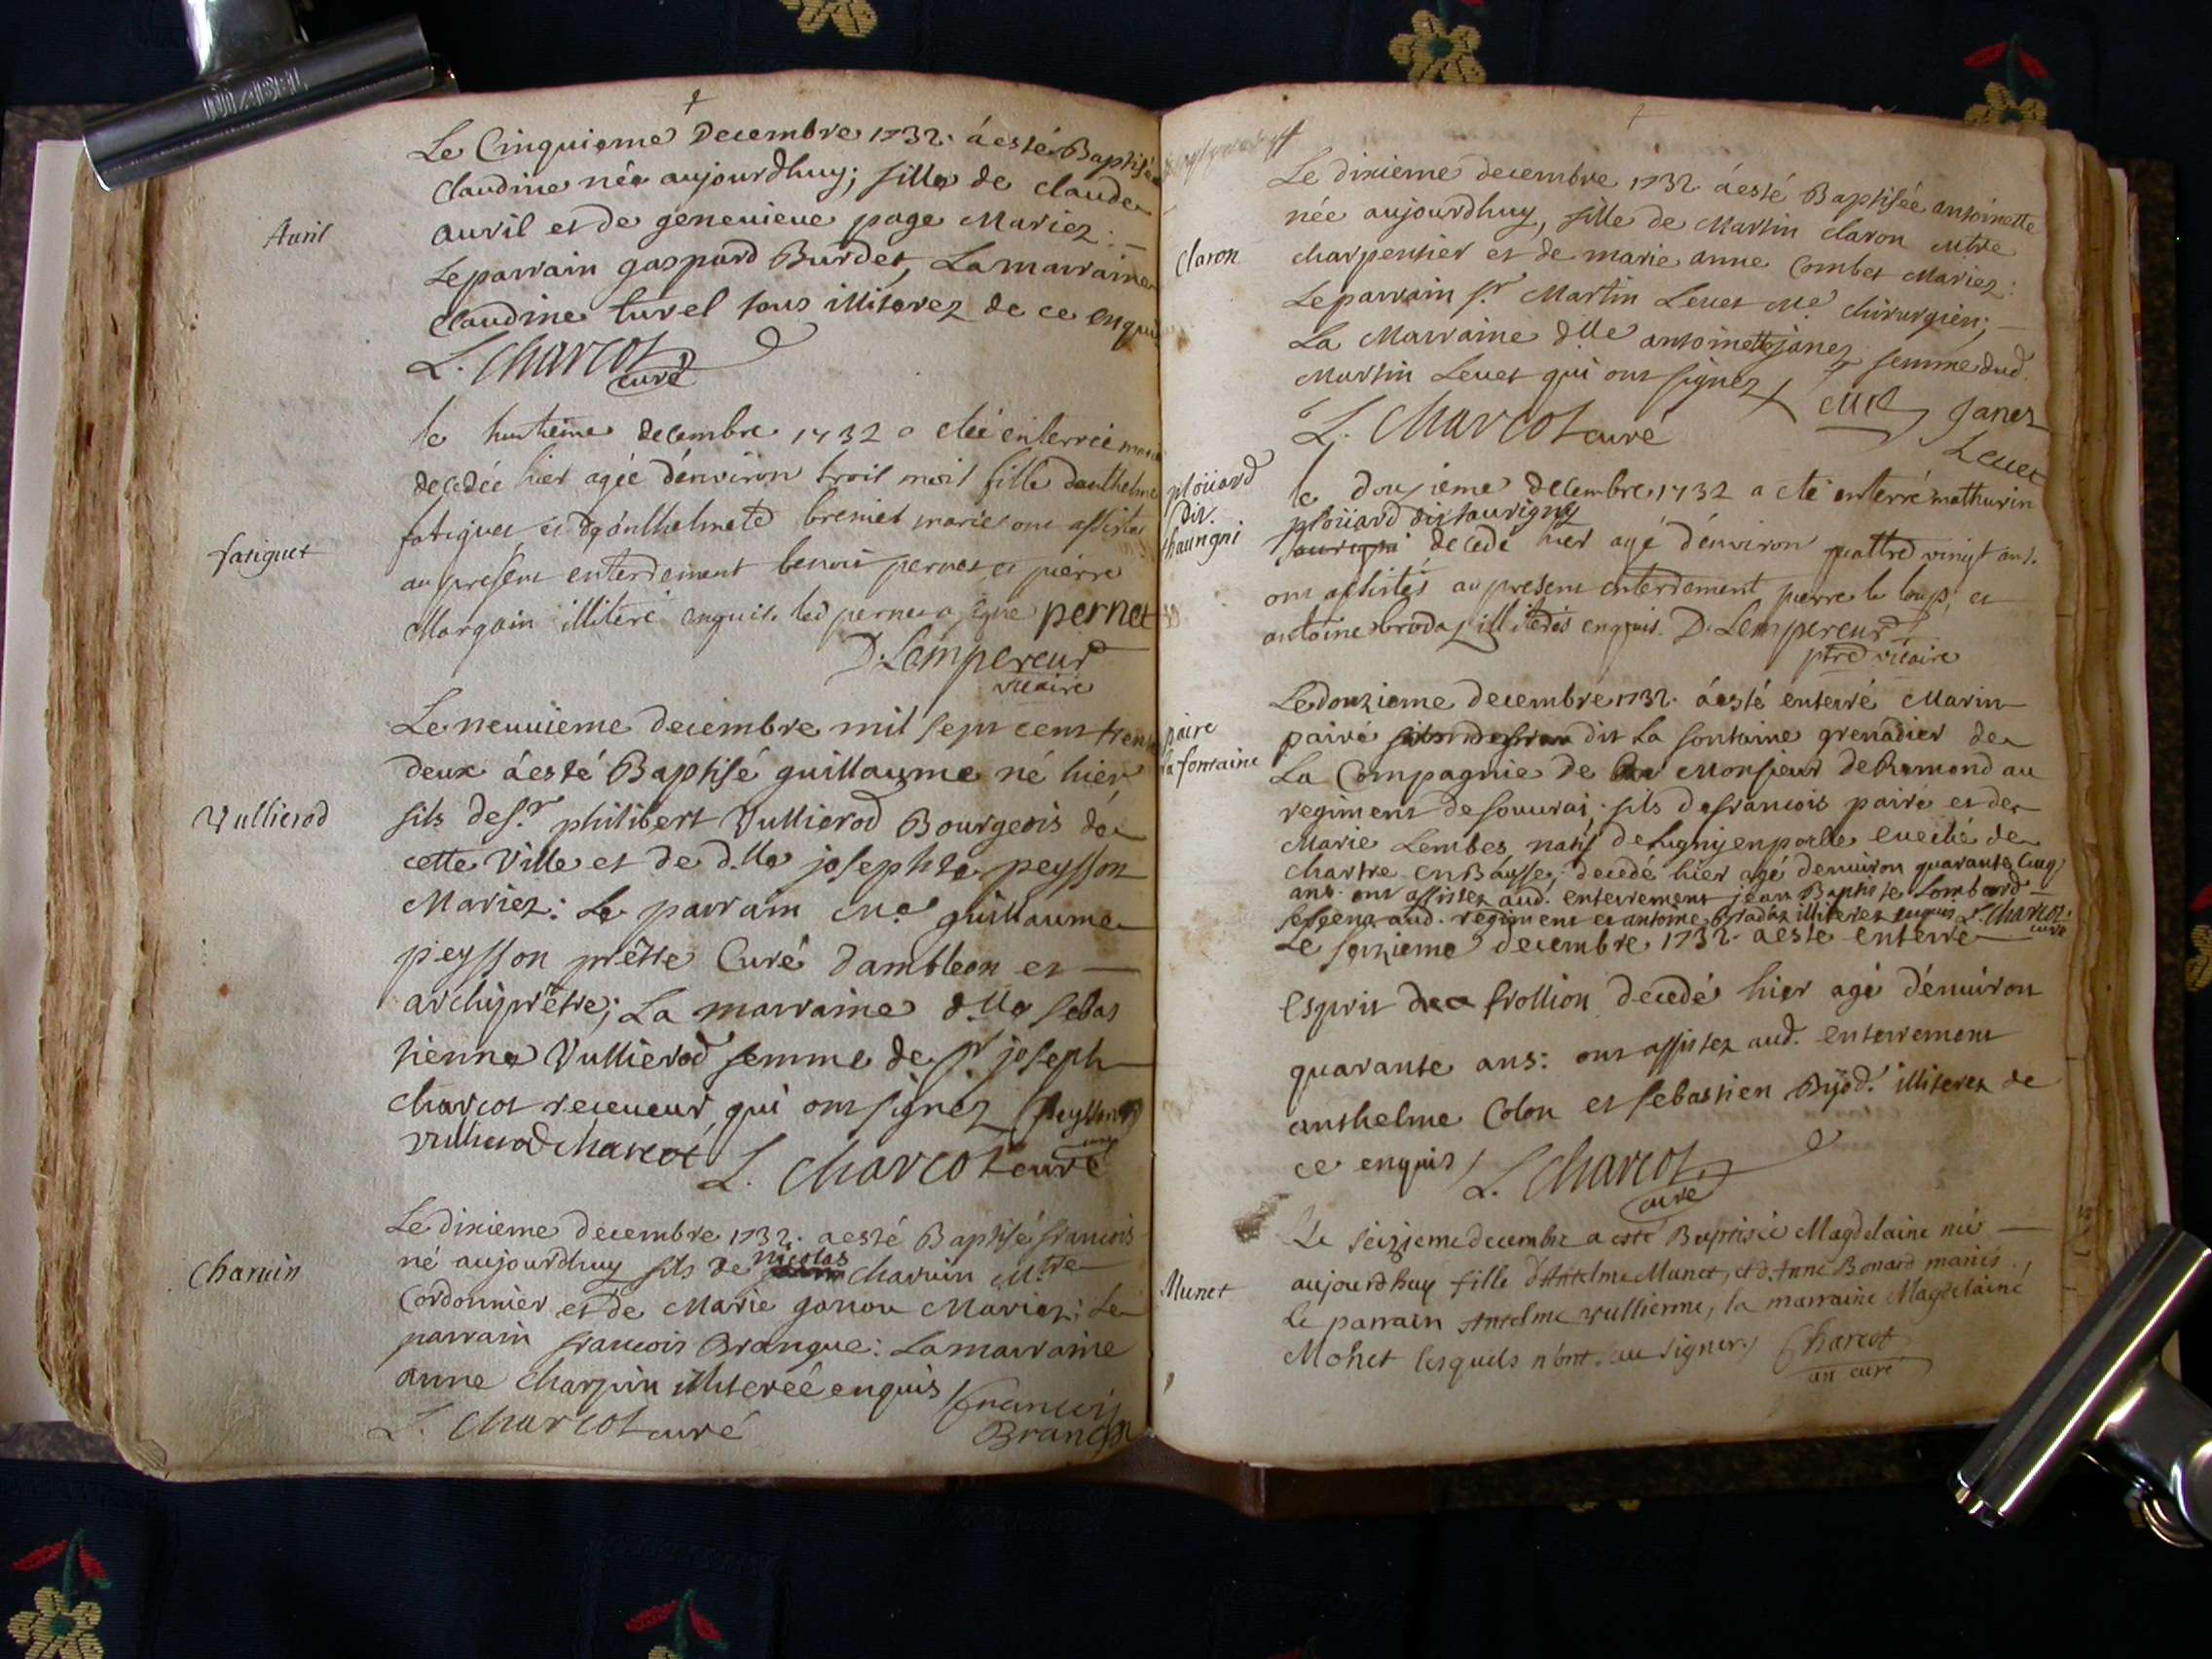 DIABEL
Le Cinquieme Decembre 1732. a esté Baptisée
Claudine née aujourdhuy; fille de claude
Avril
auril et de geneuieue page Mariez: —
Le parrain gaspard Burdet, La marraine
Claudine turel tous illiterez de ce enquis
L. Charcot
curé
le huitieme decembre 1732 a eté enterrée
decedée hier agée d'environ trois mois fille danthelme
fatiguet
fatiguet et d'anthelmete bremet mariés ont assisté
au present enterdement benoit pernet et pierre
Margain illiteré enquis. led pernet a signé pernet
D. Lempereur
vicaire
Le neuuieme decembre mil sept cent trente
deux a esté Baptisé guillaume né hier,
Vullierod
fils de Sr. philibert Vullierod Bourgeois de
cette Ville et de d.lle josephte peysson
Mariez: Le parrain Me. guillaume
peysson prêtre Curé dambleon et —
archiprêtre; La marraine d.lle Sebas
tienne Vullierod femme de Sr. joseph
charcot receueur qui ont signez peysson
vullierod charcot L. Charcot curé
Le dixieme decembre 1732. a esté Baptisé francois
né aujourdhuy fils de nicolas Charuin M.tre
Charuin
Cordonnier et de Marie gonon Mariez: Le
parrain francois Brangue: La marraine
anne Charpin illitereé enquis francois
L. Charcot curé
Le dixieme decembre 1732. a esté Baptisée antoinette
née aujourdhuy, fille de Martin claron M.tre
Claron
charpentier et de marie anne Combet Mariez:
Le parrain Sr. Martin Leuet Me. chirurgien; —
La Marraine d.lle antoinette janez femme dud.
Martin Leuet qui ont signez
Janez
L. Charcot curé
Leuet
ploüard
dit
le douzieme decembre 1732 a eté enterré mathurin
ploüard dit sauvigny
decedé hier agé d'environ quattre vingt ans.
ont assistés au present enterdement pierre le loup, et
antoine bradaz illiterés enquis. D. Lempereur
ptre vicaire
Le douzieme decembre 1732. a esté enterré Marin
paire
la fontaine
pairé dit La fontaine grenadier de
La Compagnie de Monsieur de Ramond au
regiment de souurai; fils de francois pairé et de
Marie Lembes natif de enparche eueché de
Chartre en Bausse; decedé hier agé denuiron quarante Cinq
ans. ont assistez aud. enterrement jean Baptiste Lombard
sergent aud. regiment et antoine Bradaz illiterez enquis L. Charcot
curé
Le seizieme decembre 1732. a esté enterré
Esprit frollion decedé hier agé d'enuiron
quarante ans: ont assistez aud. enterrement
anthelme Colon et sebastien Bijod. illiterez de
ce enquis L. Charcot
curé
Le seizieme decembre a esté Baptisée Magdelaine née —
Munet
aujourdhuy fille d'Antelme Munet, et d. Anne Bonard mariés.
Le parrain Antelme vullierme, la marraine Magdelaine
Monet lesquels n'ont sceu signer. Charcot
an curé